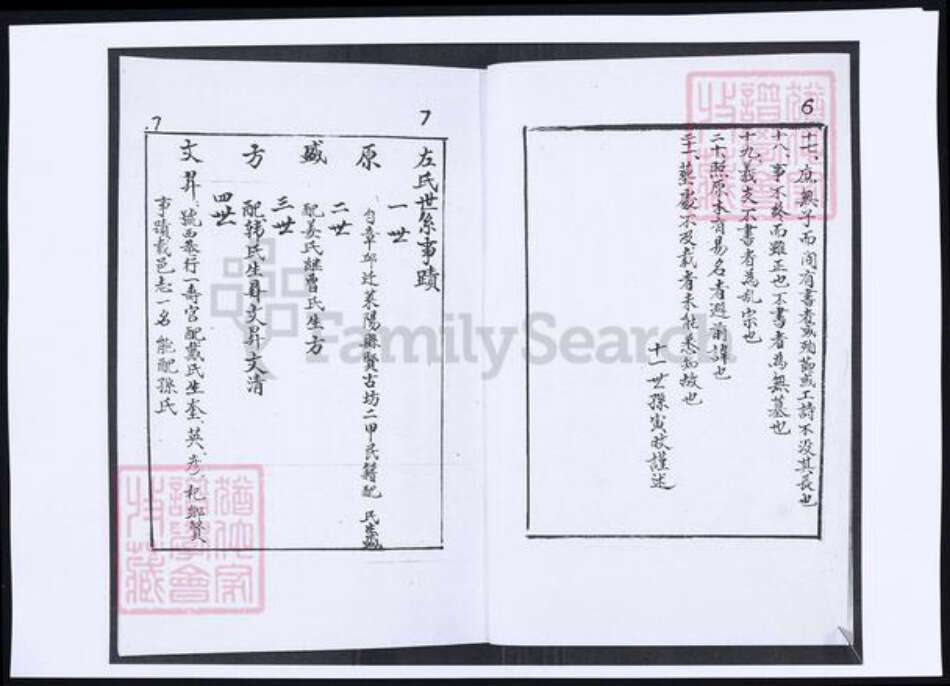 6
十七、庶無子而間有書者或殉節或工詩不没其長也
十八、事不終而雖正也不書者為無墓也
十九、義支不書者為乱宗也
二十、照原本有易名者避前諱也
二十一、塋處不及載者未能悉知故也
十一世孫寅 謹述
7
左氏世系事蹟
一世
原 自章邱迁萊陽縣賢古坊二甲民籍配 氏生盛
二世
盛 配姜氏継曹氏生方
三世
方 配韩氏生昇文昇文清
四世
文昇 號西 行一壽官配戴氏生奎、英、彦、杞鄉贊
事蹟載邑志一名 能配孫氏
.7
FamilySearch